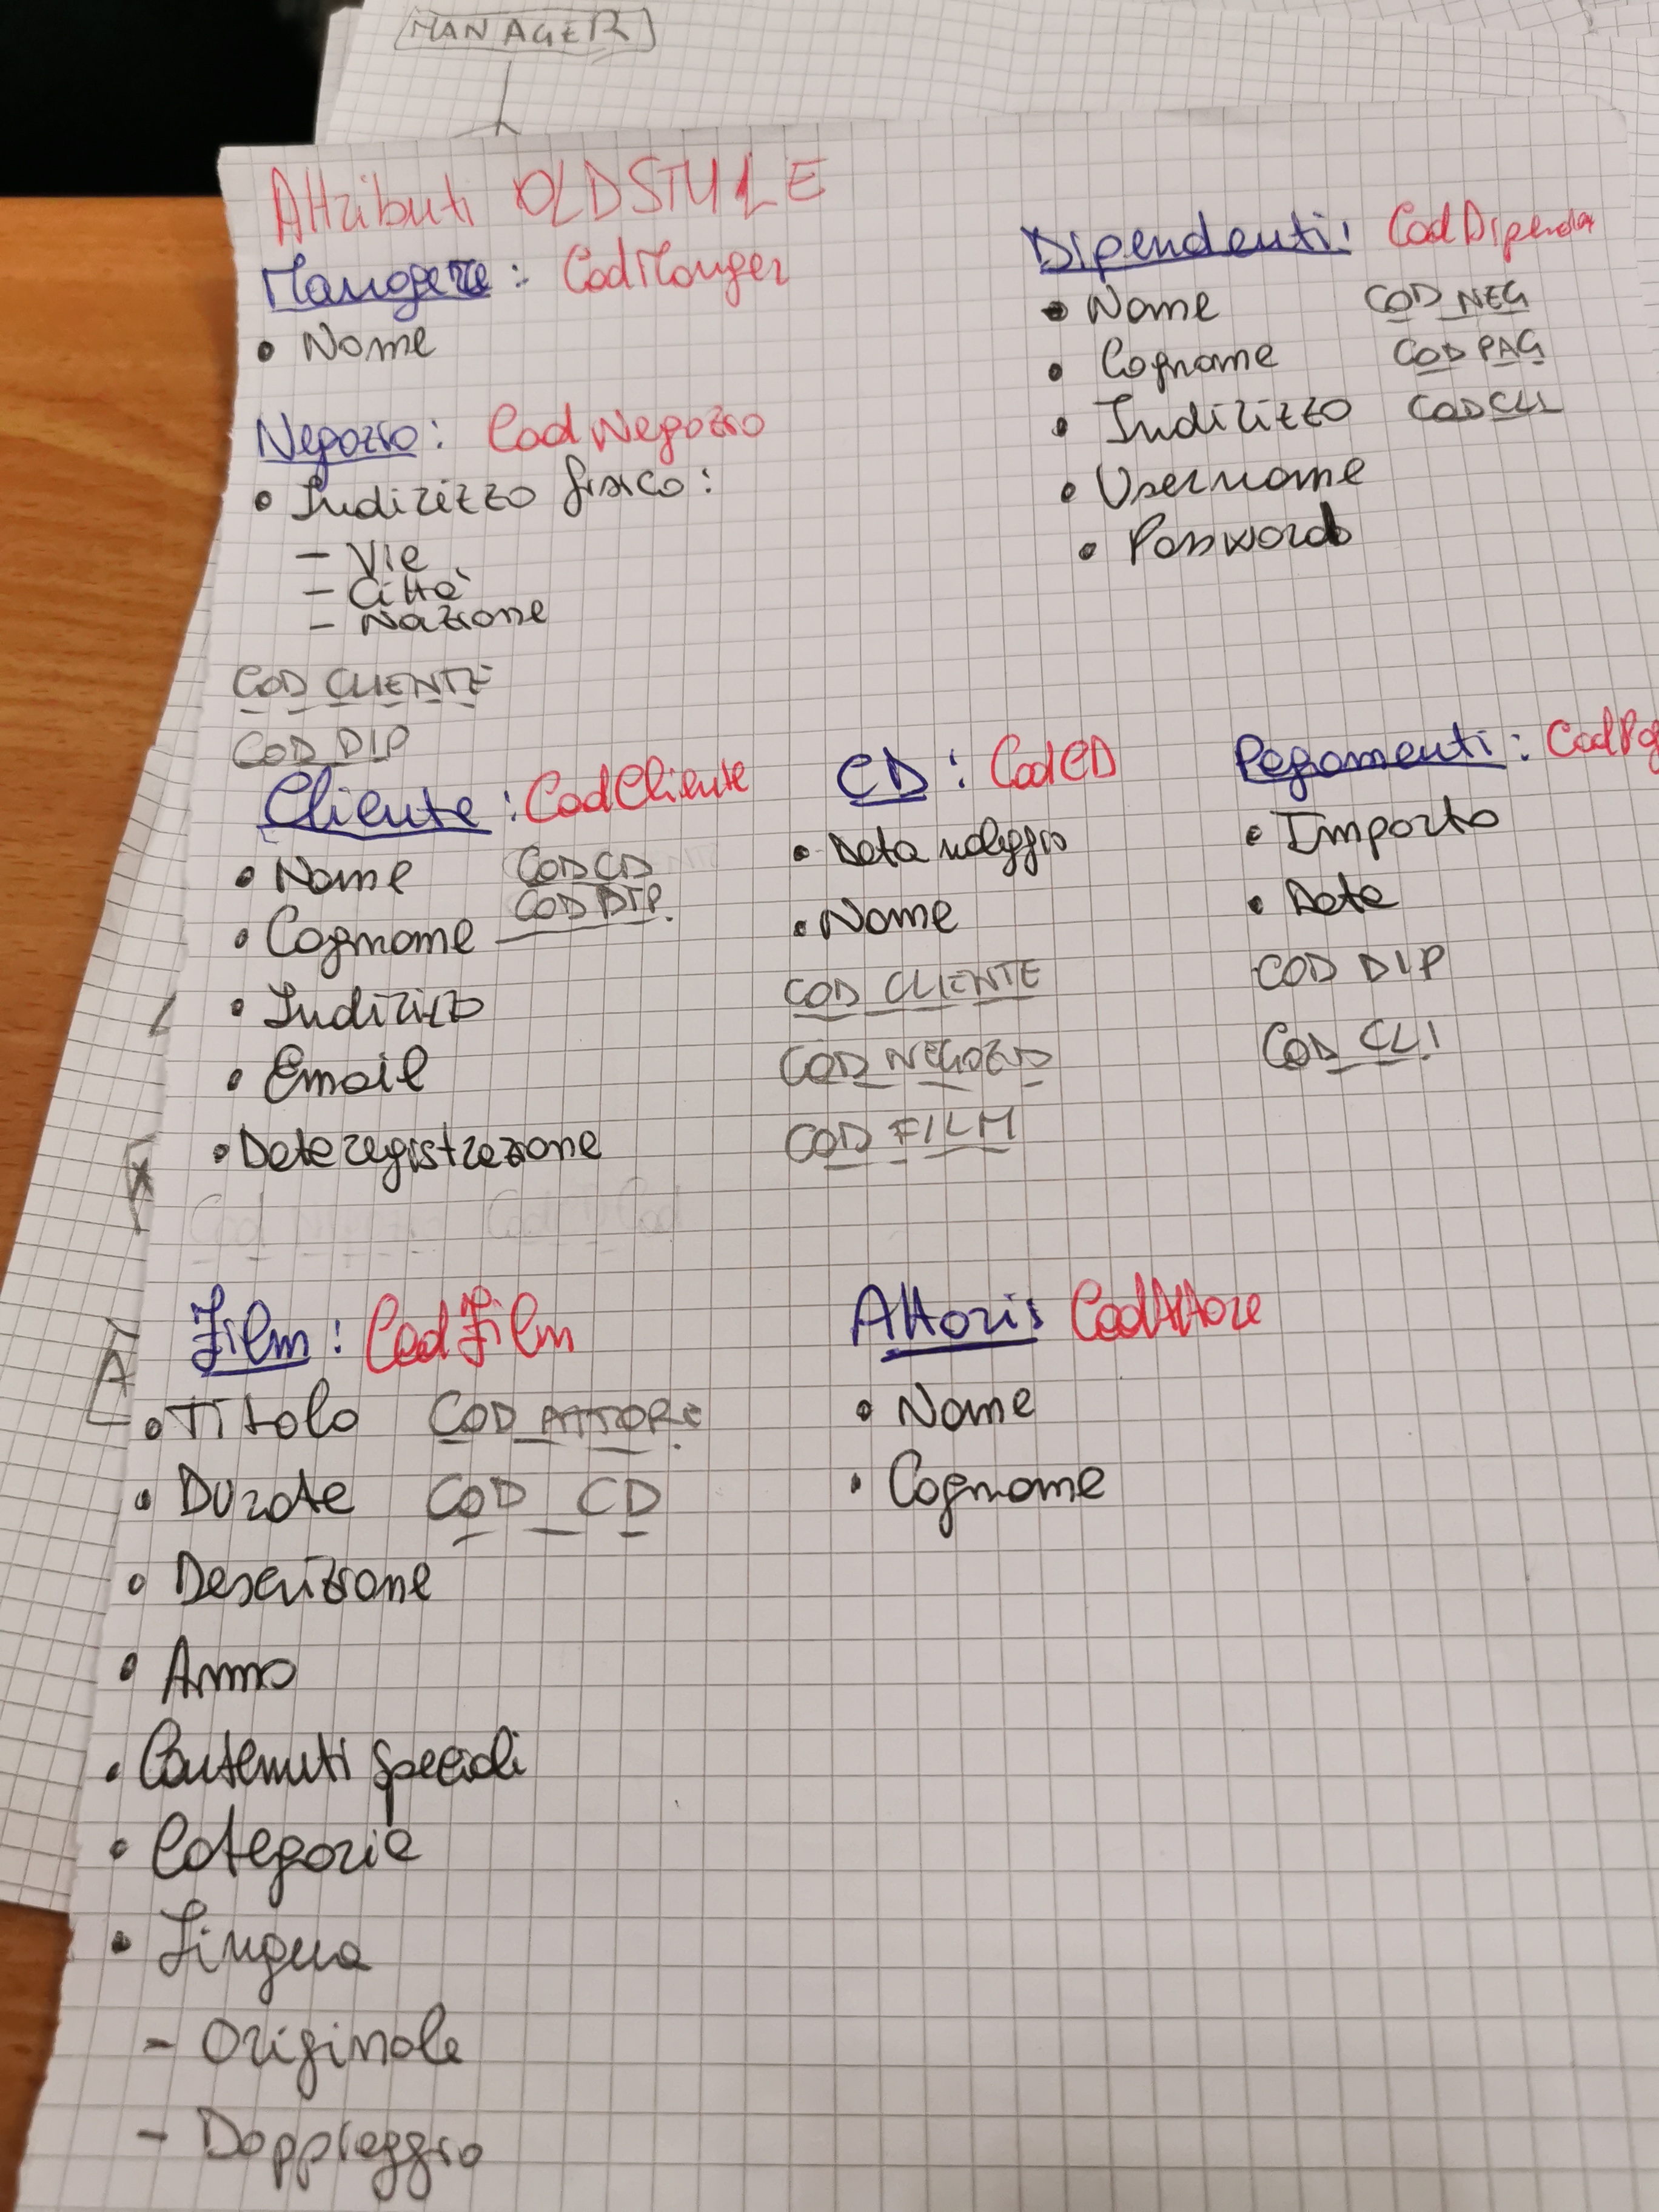 MANAGER
Attributi OLDSTYLE
Manager : CodManger
• Nome
Negozio : CodNegozio
• Indirizzo fisico :
- Via
- Città
- Nazione
COD_CLIENTE
COD_DIP
Dipendenti:
• Nome COD_NEG
• Cognome COD PAG
• Indirizzo CODCLI
• Username
• Password
Cliente : CodCliente
• Nome COD CD
• Cognome COD DIP
• Indirizzo
• Email
• Data registrazione
CD : CodCD
• Data noleggio
• Nome
COD_CLIENTE
COD_NEGOZIO
COD_FILM
Pagamenti : CodPg
• Importo
• Data
COD DIP
COD_CLI
Film : CodFilm
• Titolo COD_ATTORE
• Durata COD_CD
• Descrizione
• Anno
• Contenuti speciali
• Categoria
• Lingua
- Originale
- Doppiaggio
Attori: CodAttore
• Nome
• Cognome